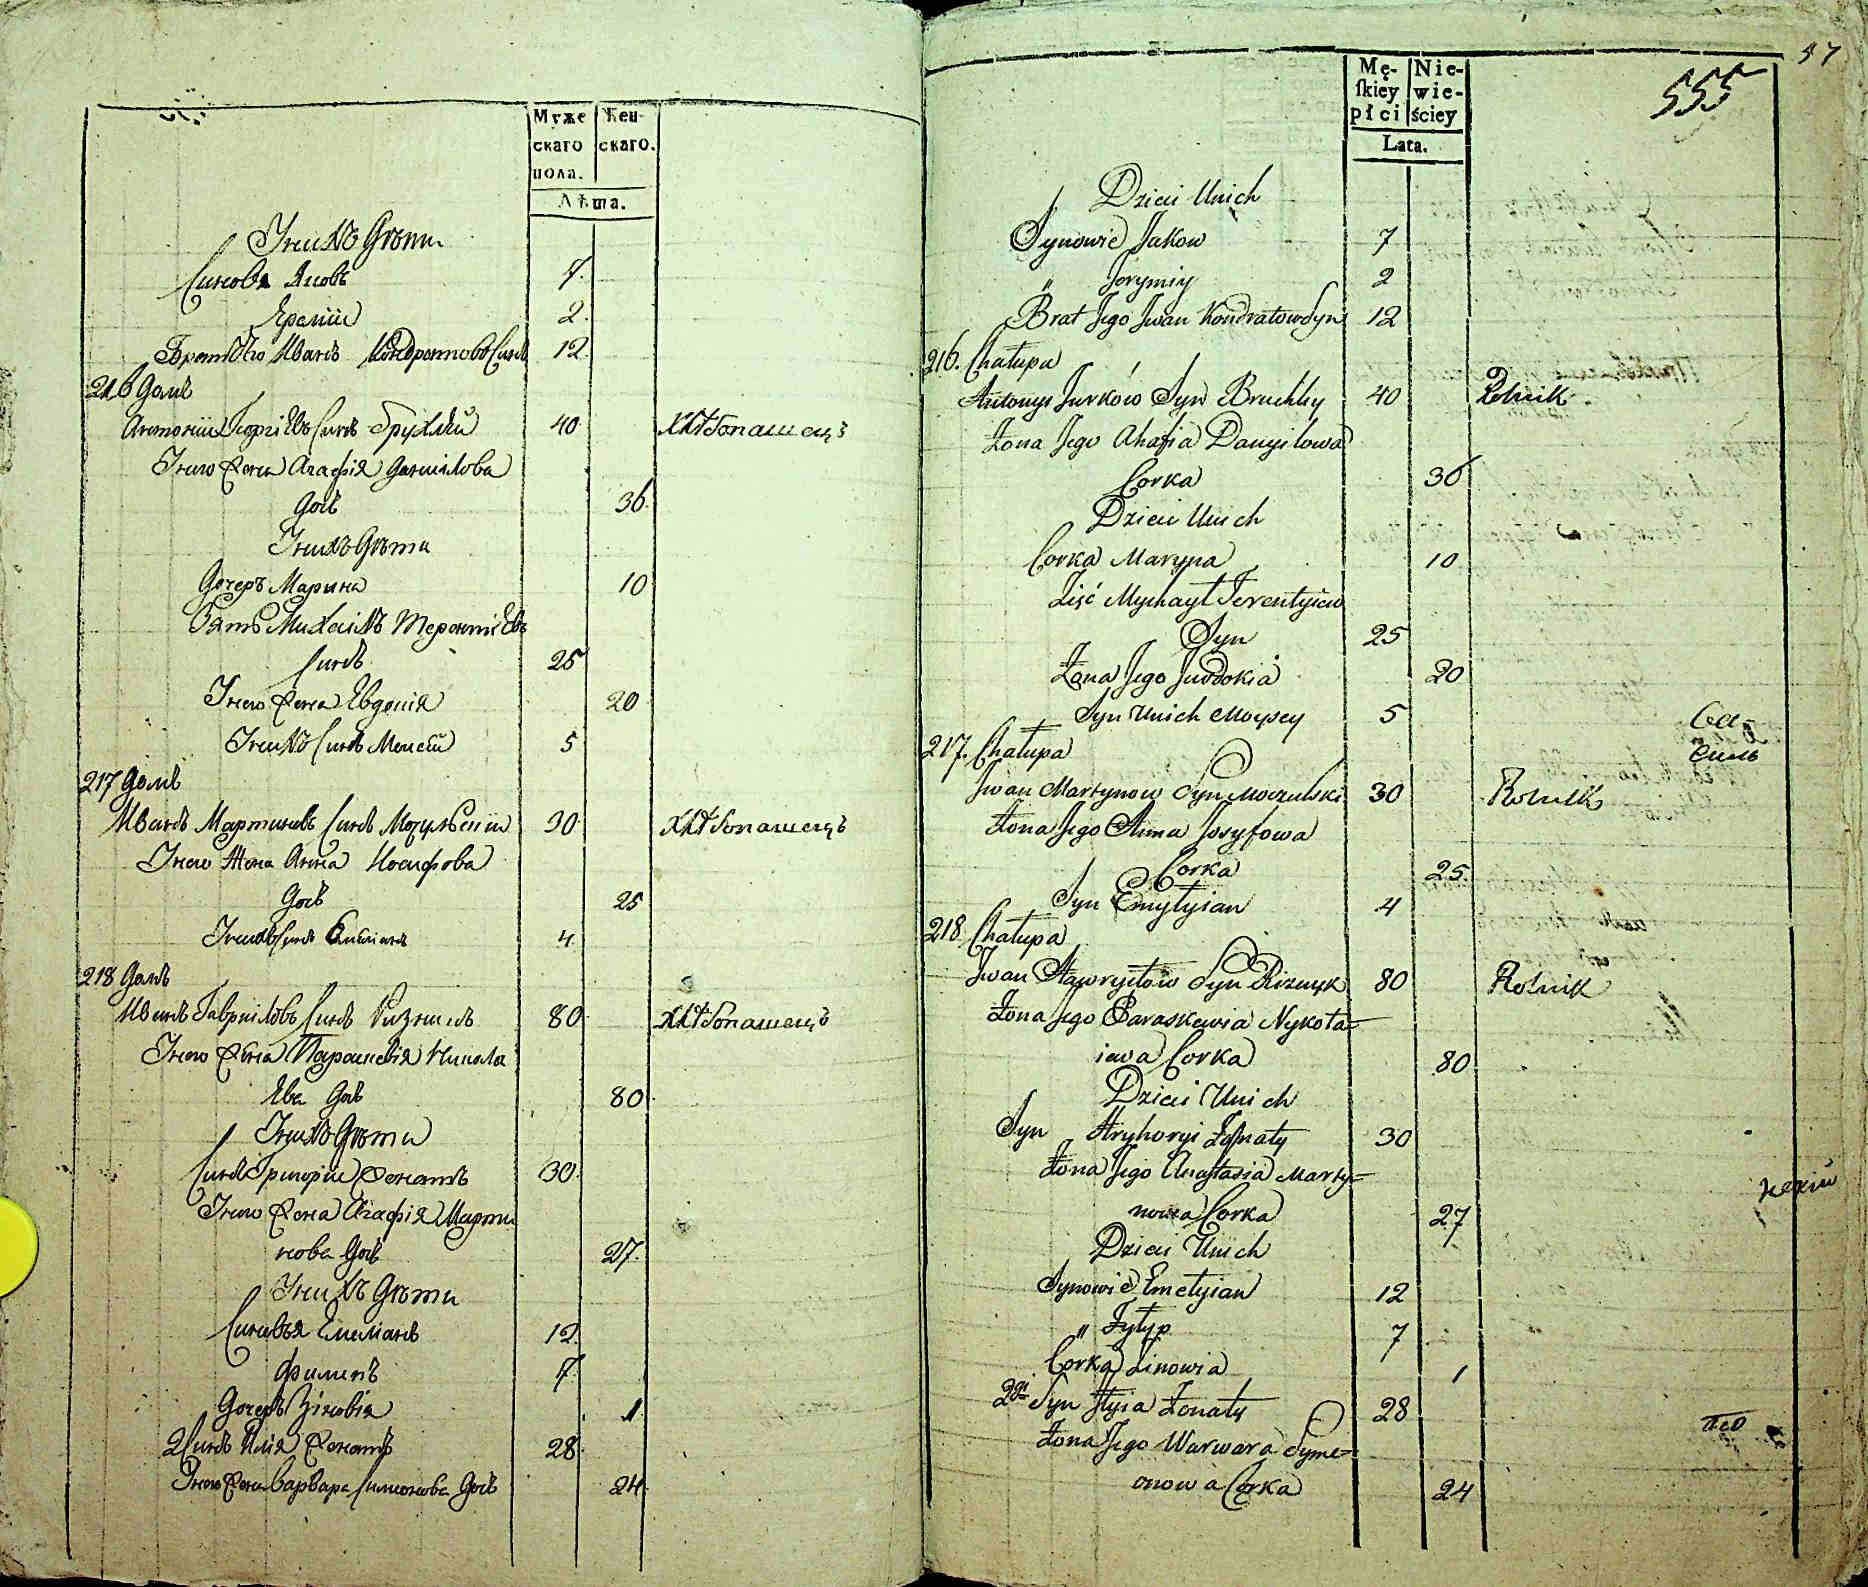 Муже
скаго
пола.
Жен-
скаго.
Лѣта.
У нихъ Дѣти
Синовя Яковъ 7.
Ереміи 2.
Братъ Его Иванъ Кондратовъ Синъ 12.
216 Домъ
Антоніи Георгіевъ Синъ Брухлій 40 Хлѣбопашецъ
У него Жена Агафія Данилова
Дочь 36.
У нихъ Дѣти
Дочеръ Марина 10
Зять Михаилъ Терентіевъ
Синъ 25
У него Жена Евдокія 20
У нихъ Синъ Моисей 5
217 Домъ
Иванъ Мартиновъ Синъ Мочулскіи 30 Хлѣбопашецъ
У него Жена Анна Иосифова
Дочь 25
У нихъ Синъ Емиліанъ 4
218 Домъ
Иванъ Гавриловъ Синъ Ризникъ 80 Хлѣбопашецъ
У него Жена Параскевія Никола
Ева Дочь 80
У нихъ Дѣти
Синъ Григоріи Женатъ 30.
У него Жена Агафія Марти
нова Дочь 27.
У нихъ Дѣти
Синовья Емиліанъ 12.
Филипъ 7.
Дочеръ Зіновія 1
2 Синъ Илія Женатъ 28
У него Жена Варвара Симионова Дочь 24
57
555
Mę-
skiey
płci
Nie-
wie-
ściey
Lata.
Dzieci Unich
Synowie Jakow 7
„ Jerymiy 2
Brat Jego Jwan Kondratow Syn 12
216. Chałupa
Antonyi Jurków Syn Bruchly 40 Rolnik
Żona Jego Ahafia Danyiłowa
Corka 36
Dzieci Unich
Corka Maryna 10
Zięć Mychaył Terentyiew
Syn 25
Żona Jego Jewdokia 20
Syn Unich Moysey 5
217. Chałupa
Jwan Martynow Syn Moczulski 30 Rolnik
Żona Jego Anna Josyfowa
Corka 25.
Syn Emyłyian 4
218 Chałupa
Jwan Hawryłow Syn Riznyk 80 Rolnik
Żona Jego Paraskewia Nykoła-
iewa Corka 80
Dzieci Unich
Syn Hryhoryi Żonaty 30
Żona Jego Anastasia Marty-
nowa Corka 27
Dzieci Unich
Synowie Emelyian 12
„ Fyłyp 7
Corka Zinowia 1
2gi Syn Jlyia Żonaty 28
Żona Jego Warwara Syme-
onowa Corka 24